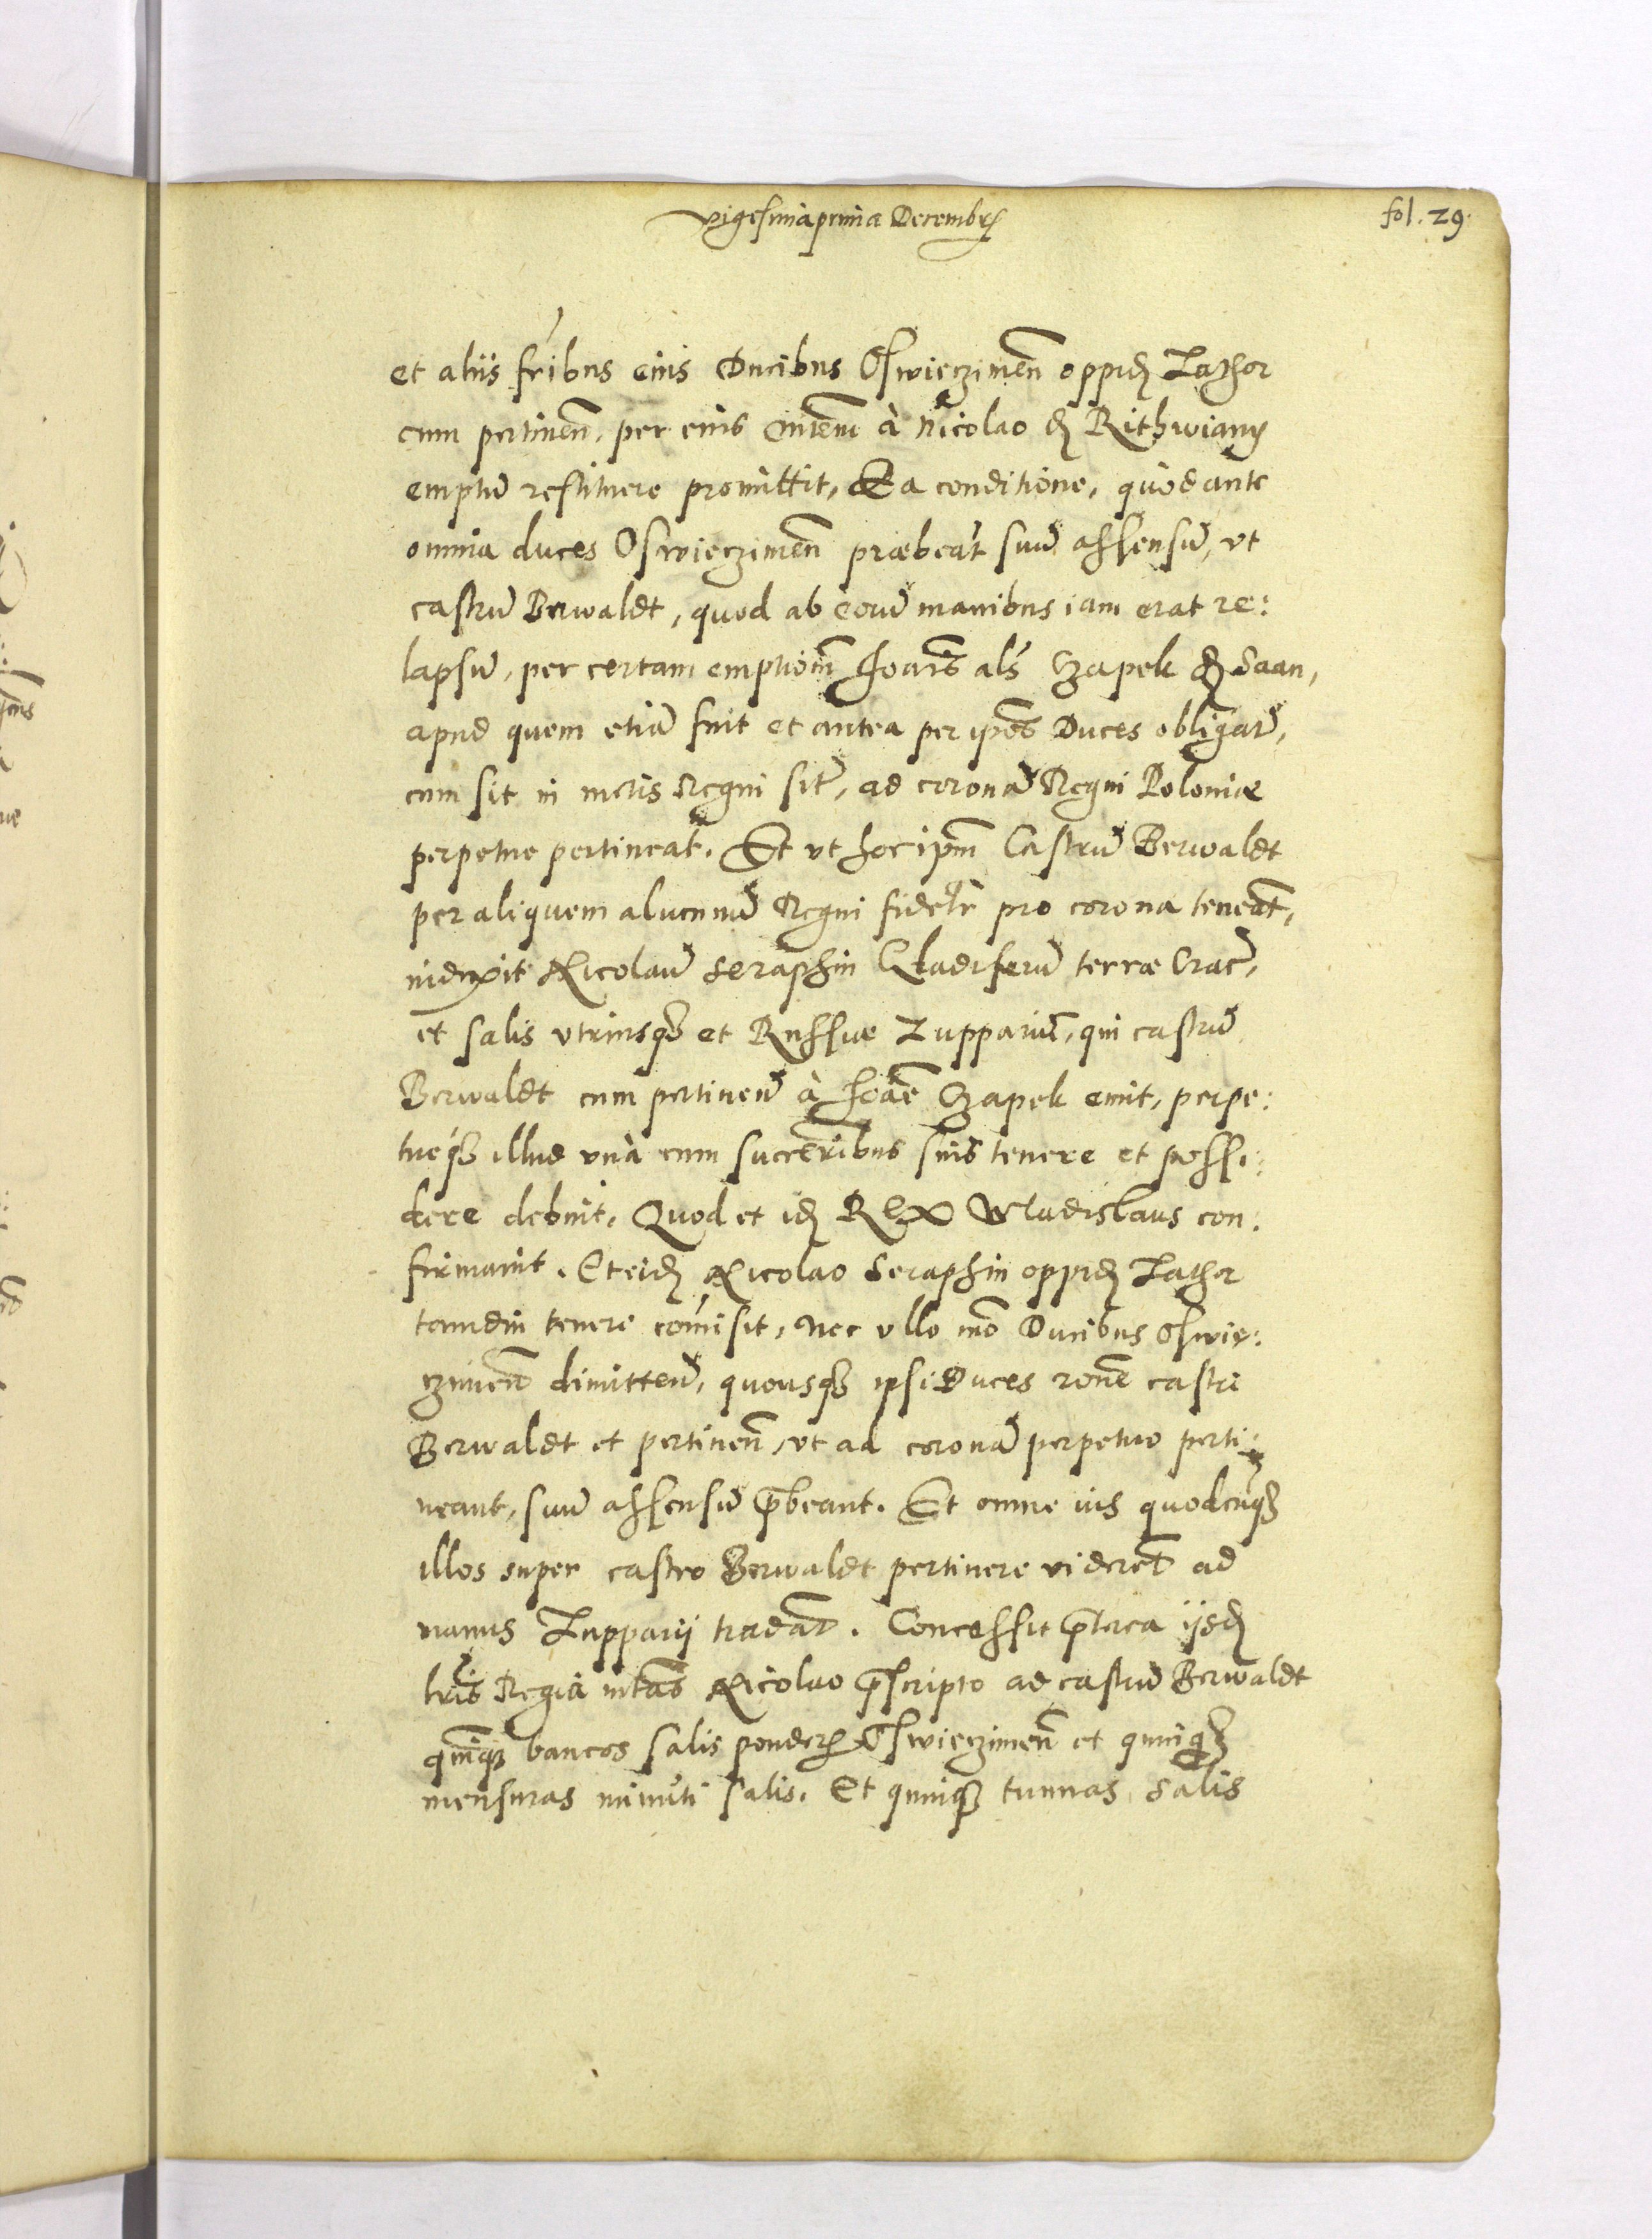 vigesima prima Decembris
fol. 29.
et aliis fr̃ibus eius Ducibus Oswieczimen̄ oppid Zathor
cum pertinen̄, per eius Mtem̄ à Nicolao d Rithwiany
emptū restituere promittit, Ea conditione, quòd ante
omnia duces Oswieczimen̄ præbeāt suū assensū, vt
castrū Berwaldt, quod ab eorū manibus iam erat re:
lapsū, per certam emptiom̄ Joañis als̄ Czapek d Saan,
apud quem etiā fuit et antea per ip̄os Duces obligatū,
cum sit in metis Regni sitū, ad coronā Regni Poloniæ
perpetue pertineat. Et vt hoc ip̄m Castrū Berwaldt
per aliquem alumnū Regni fidelr̄ pro corona teneat̄,
induxit Nicolaū Seraphin Gladiferū terræ Crac̄,
et salis vtriusq̃ et Russiæ Zuppariū, qui castrū
Berwaldt cum pertinen̄ à Joan̄e Czapek emit, perpe:
tueq́ illud vnà cum succer̄ibus suis tenere et possi:
dere debuit. Quod et id Rex Wladislaus con:
firmauit. Et eid Nicolao Seraphin oppid Zathor
tamdiu tenere com̄isit, nec vllo mō Ducibus Oswie:
czimen̄ dimitten̄, quousq̃ ipsi Duces ron̄e castri
Berwaldt et pertinen̄, vt ad coronā perpetuo perti:
neant, suū assensū p̄beant. Et omne ius quodcūq̃
illos super castro Berwaldt pertinere videret̄ ad
manus Zupparij tradāt. Concessit p̄terea ijsd
lr̄is Regia mtas̄ Nicolao p̄scripto ad castrū Berwaldt
quinq̃ bancos salis ponderis Oswieczimen̄ et quinq̃
mensuras minuti salis. Et quinq̃ tunnas salis